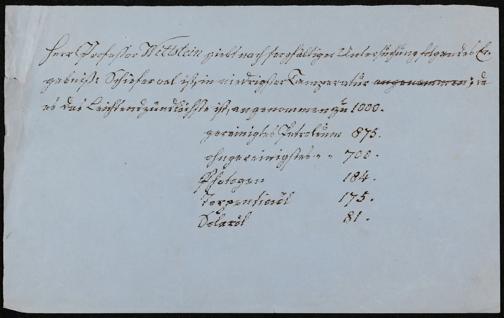 Herr Professor Wettstein zieht nach sorgfältiger Untersuchung folgendes Er-
gebniß: Schieferoel ist, in niedrigster Temperatur angenommen, da
es das Leichtendzündlichste ist, angenommen zu 1000.
gereinigtes Petroleum 875.
ohngereinigtes " " 700.
Photogen 184.
Terpentinöl 175.
Solaröl 81.